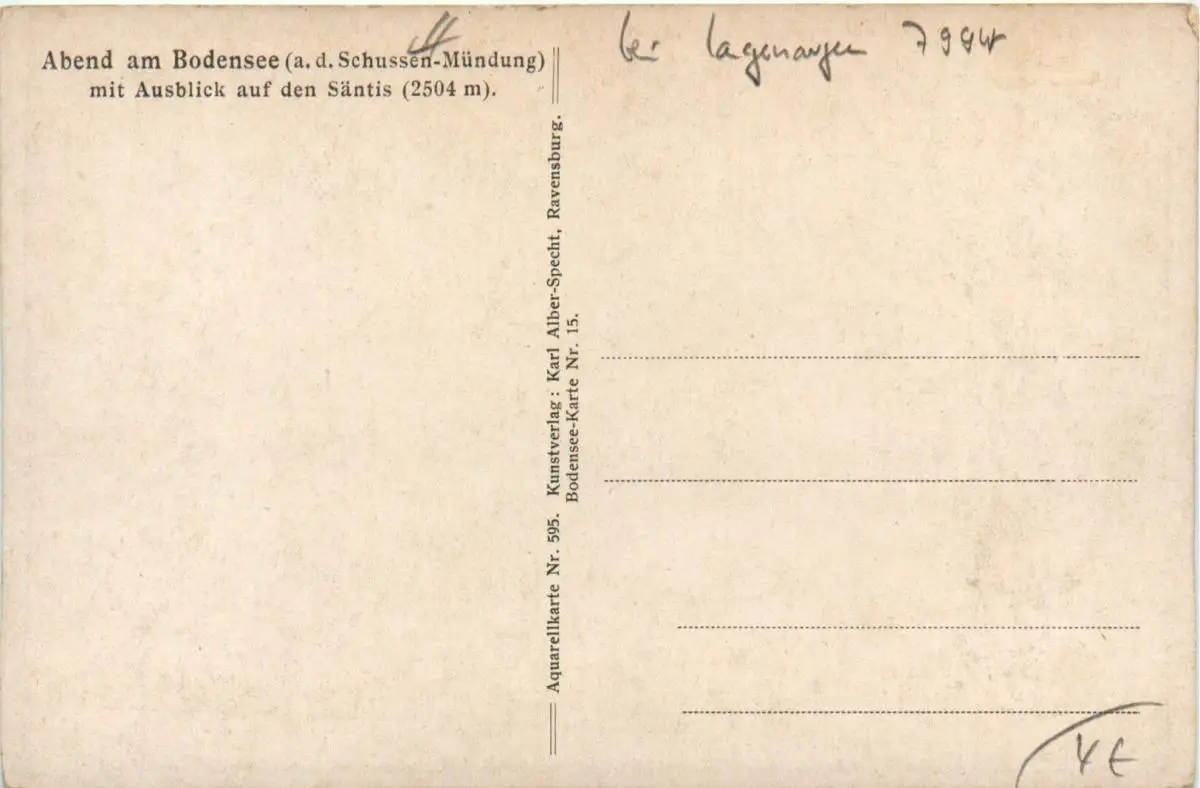 Abend am Bodensee (a. d. Schussen-Mündung)
mit Ausblick auf den Säntis (2504 m).
bei Lagenargen 7994
Aquarellkarte Nr. 595. Kunstverlag: Karl Alber-Specht, Ravensburg.
Bodensee-Karte Nr. 15.
4 €